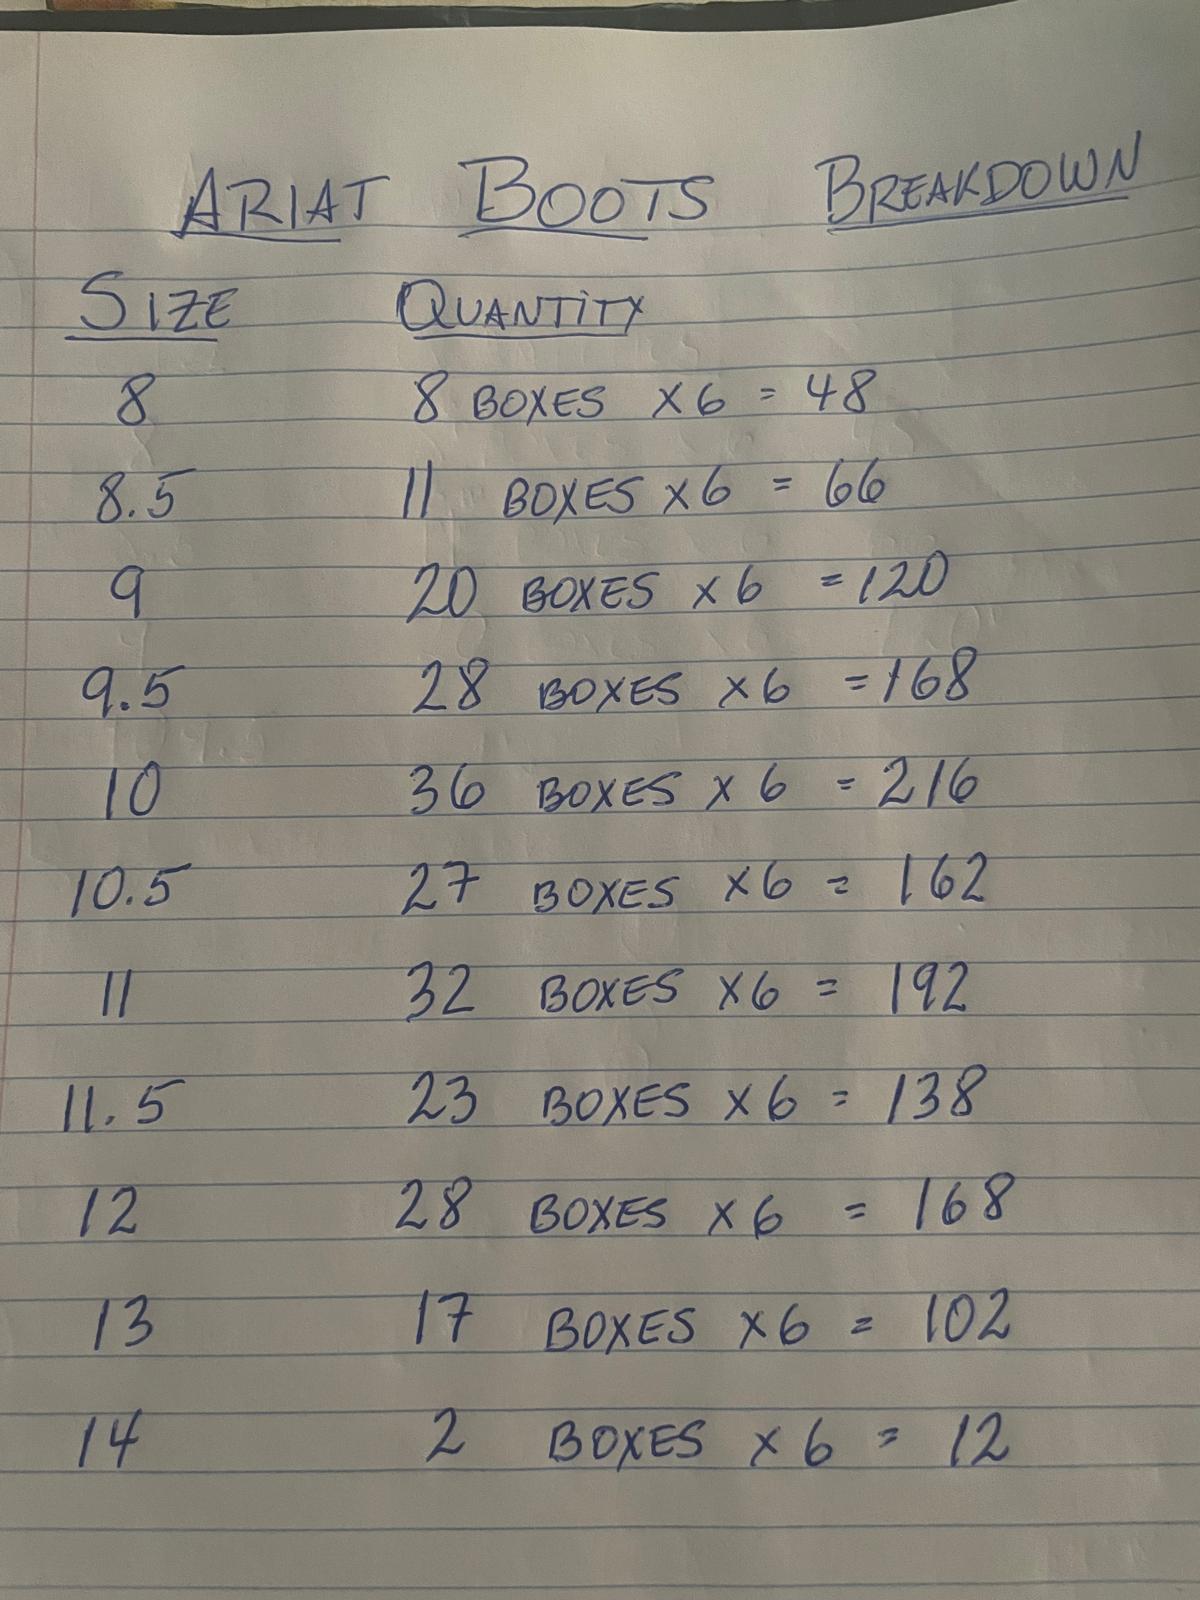 ARIAT BOOTS BREAKDOWN
SIZE QUANTITY
8 8 BOXES X6 = 48
8.5 11 BOXES X6 = 66
9 20 BOXES X6 = 120
9.5 28 BOXES X6 = 168
10 36 BOXES X6 = 216
10.5 27 BOXES X6 = 162
11 32 BOXES X6 = 192
11.5 23 BOXES X6 = 138
12 28 BOXES X6 = 168
13 17 BOXES X6 = 102
14 2 BOXES X6 = 12